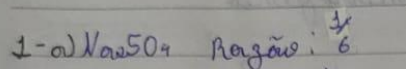 1-a) Na2SO4 Razão: 1/6